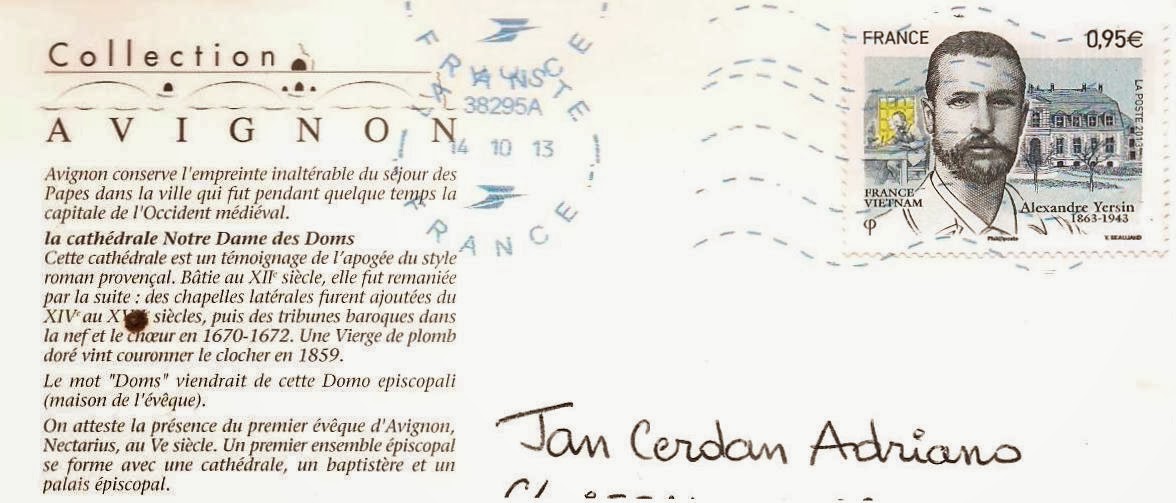 Collection
AVIGNON
Avignon conserve l'empreinte inaltérable du séjour des
Papes dans la ville qui fut pendant quelque temps la
capitale de l'Occident médiéval.
la cathédrale Notre Dame des Doms
Cette cathédrale est un témoignage de l'apogée du style
roman provençal. Bâtie au XIIe siècle, elle fut remaniée
par la suite : des chapelles latérales furent ajoutées du
XIVe au siècles, puis des tribunes baroques dans
la nef et le chœur en 1670-1672. Une Vierge de plomb
doré vint couronner le clocher en 1859.
Le mot "Doms" viendrait de cette Domo episcopali
(maison de l'évêque).
On atteste la présence du premier évêque d'Avignon,
Nectarius, au Ve siècle. Un premier ensemble épiscopal
se forme avec une cathédrale, un baptistère et un
palais épiscopal.
FRANCE
38295A
14 10 13
FRANCE
FRANCE 0,95€
LA POSTE 2013
FRANCE
VIETNAM
Alexandre Yersin
1863-1943
Phil@poste
Y. BEAUJARD
Jan Cerdan Adriano